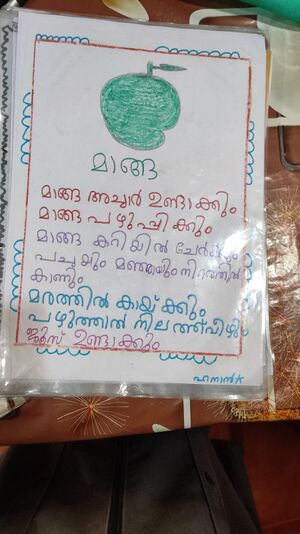 മാങ്ങ
മാങ്ങ അച്ചാർ ഉണ്ടാക്കും
മാങ്ങ പഴുപ്പിക്കും
മാങ്ങ കറിയിൽ ചേർക്കും
പച്ചയും മഞ്ഞയും നിറത്തിൽ
കാണും
മരത്തിൽ കായ്ക്കും
പഴുത്താൽ നിലത്ത് വീഴും
ജൂസ് ഉണ്ടാക്കും